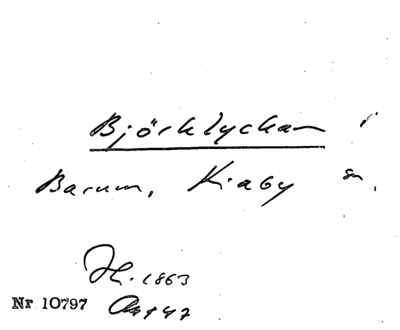 Björklyckan i
Barum, Kiaby sn.
H. 1863
Nr 10797